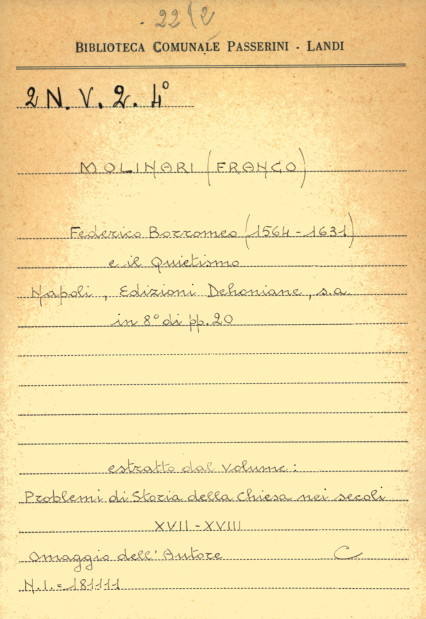 22/2
BIBLIOTECA COMUNALE PASSERINI - LANDI
2 N. V. 2. 4°
MOLINARI (FRANCO)
Federico Borromeo (1564 - 1631)
e il Quietismo
Napoli, Edizioni Dehoniane, s.a
in 8° di pp. 20
estratto dal volume:
Problemi di Storia della Chiesa nei secoli
XVII - XVIII
Omaggio dell'Autore C
N.I. = 181111